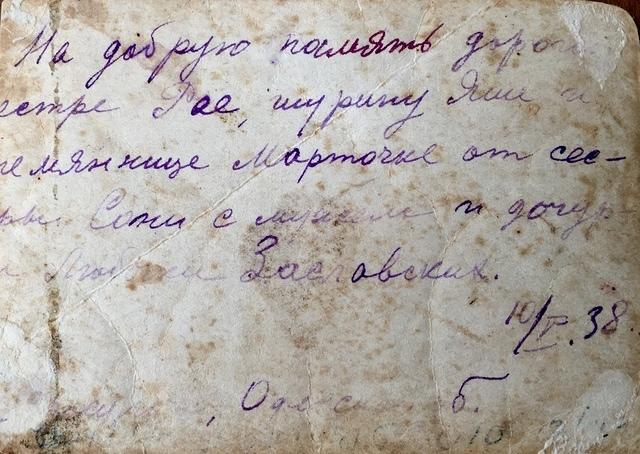 На добрую память дорогой
сестре Рае, шурину Яше и
племяннице Марточке от сес-
ры Сони с мужем и дочур
Любочки Заславских.
10/I.38
Одесская б.